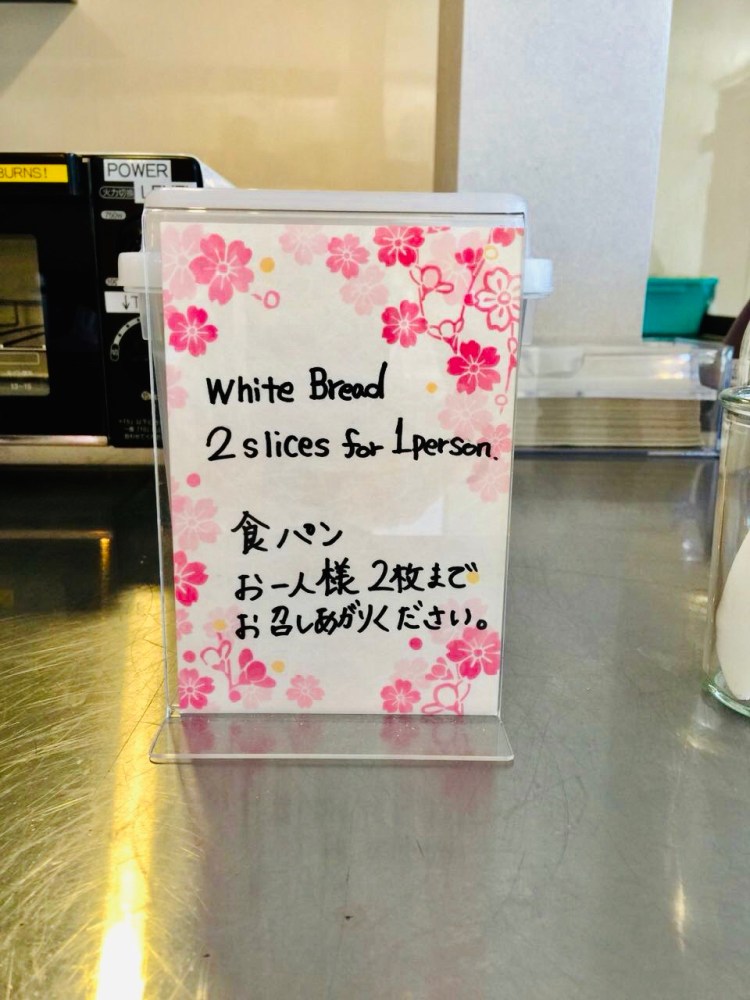 BURNS!
POWER
火力切換
750W
White Bread
2 slices for 1 person.
食パン
お一人様 2枚まで
お召しあがりください。